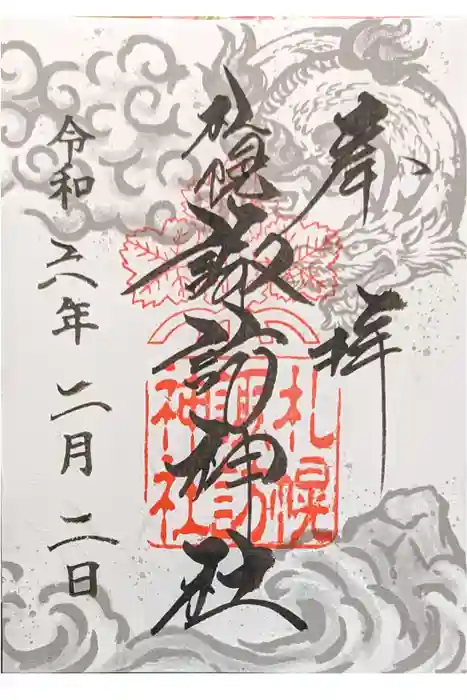 奉拝
札幌諏訪神社
令和六年二月二日
札幌
諏訪
神社